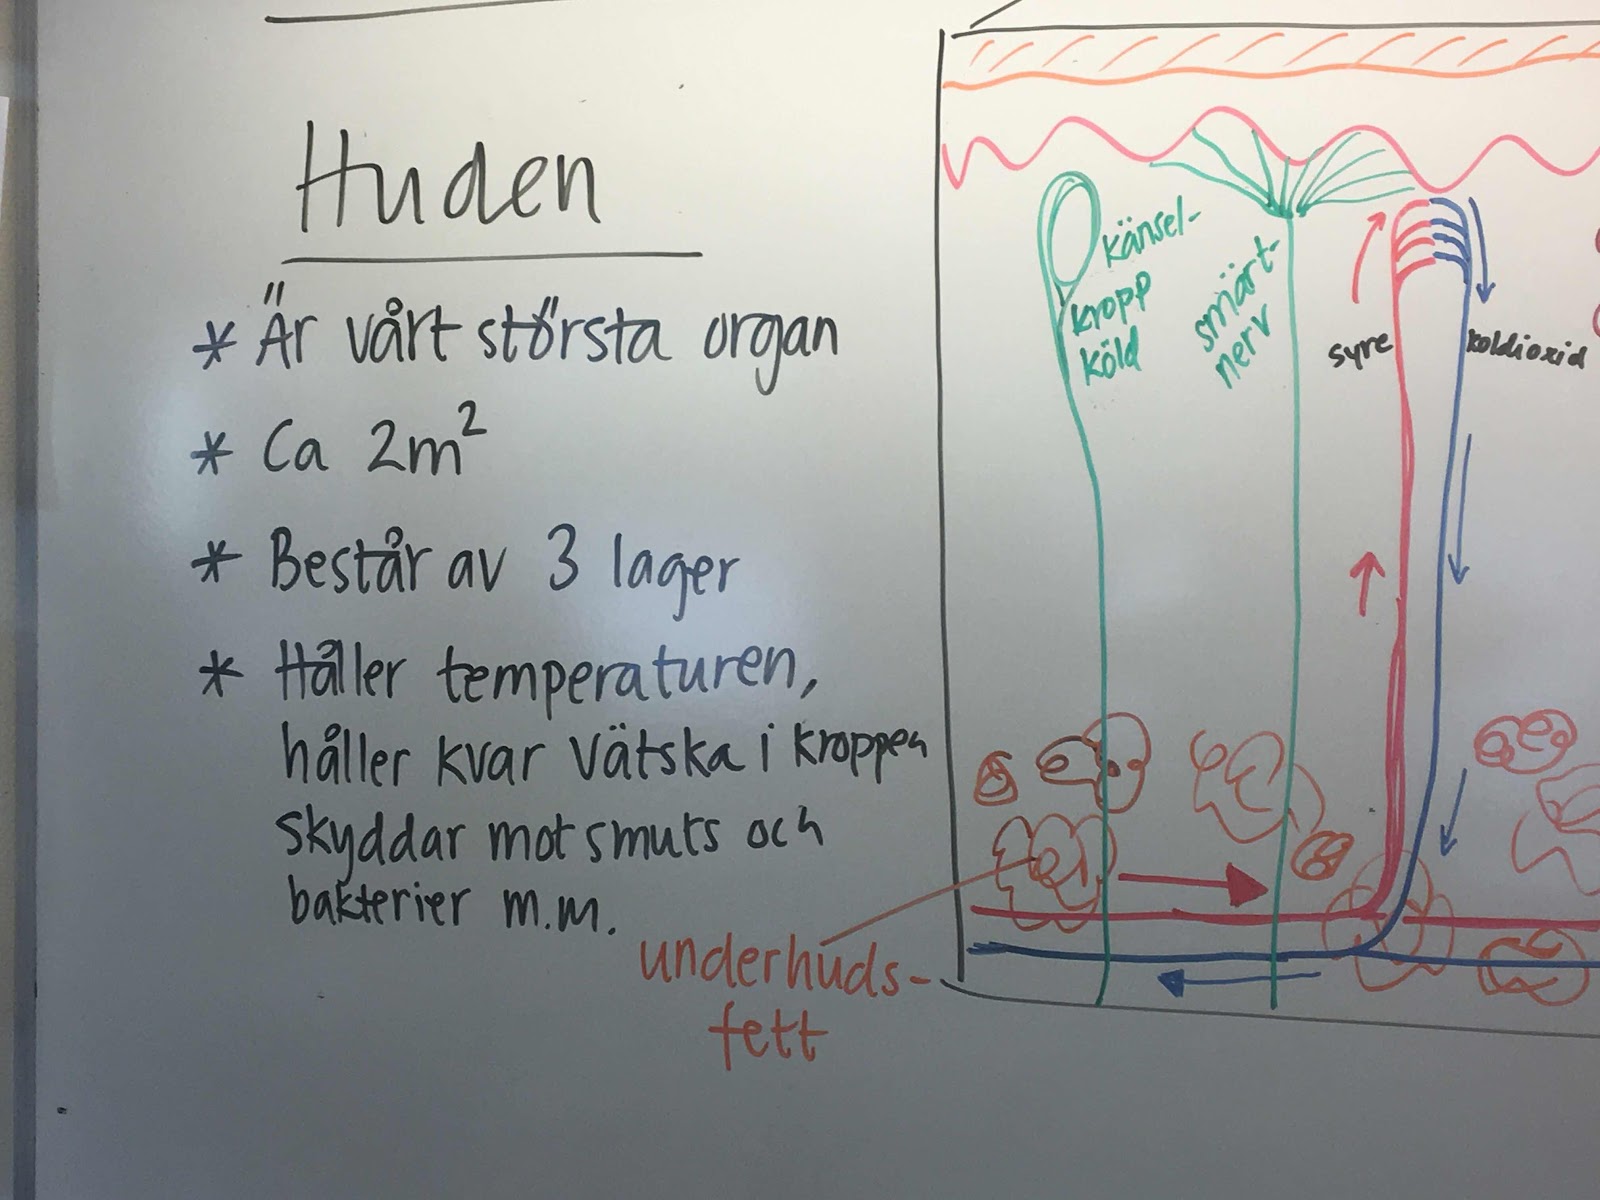 Huden
* Är vårt största organ
* Ca 2m²
* Består av 3 lager
* Håller temperaturen,
håller kvar vätska i kroppen
skyddar mot smuts och
bakterier m.m.
underhuds-
fett
känsel-
kropp
köld
smärt-
nerv
syre
koldioxid